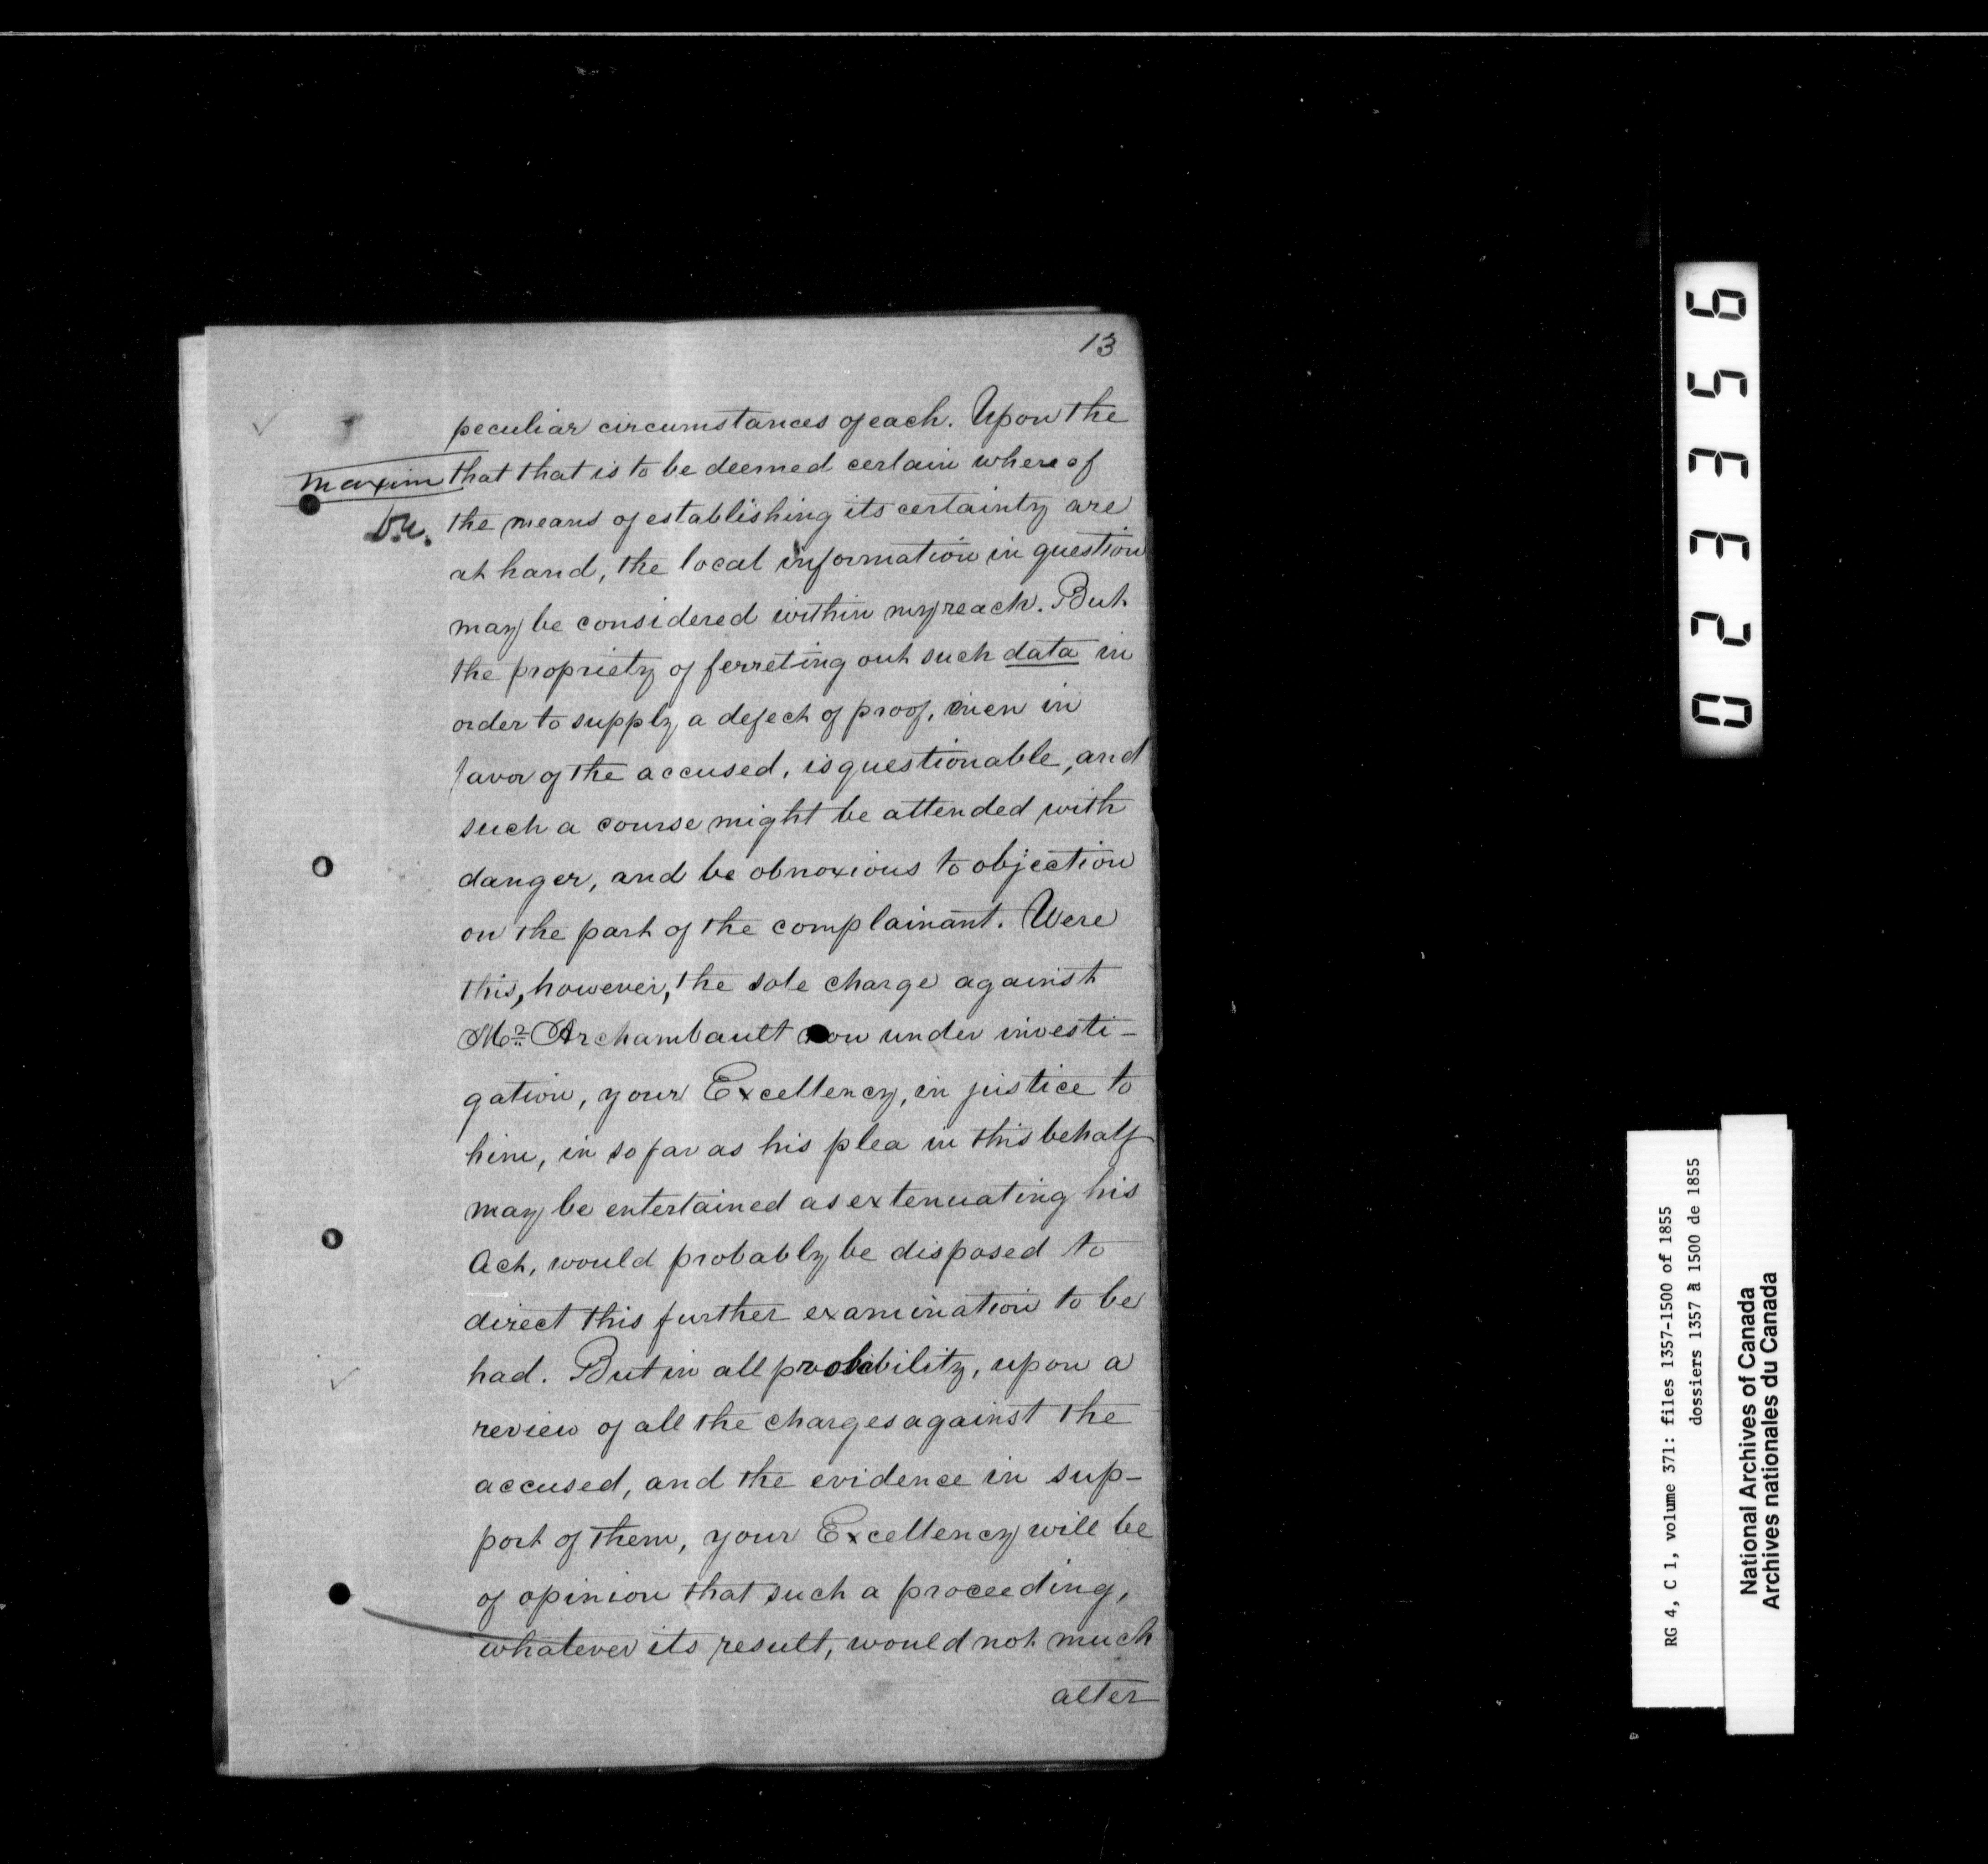 13
peculiar circumstances of each. Upon the
maxim that that is to be deemed certain where of
the means of establishing its certainty are
at hand, the local information in question
may be considered within my reach. But
the propriety of ferreting out such data in
order to supply a defect of proof, even in
favor of the accused, is questionable, and
such a course might be attended with
danger, and be obnoxious to objection
on the part of the complainant. Were
this, however, the sole charge against
Mr. Archambault now under investi-
gation, your Excellency, in justice to
him, in so far as his plea in this behalf
may be entertained as extenuating his
Act, would probably be disposed to
direct this further examination to be
had. But in all probability, upon a
review of all the charges against the
accused, and the evidence in sup-
port of them, your Excellency will be
of opinion that such a proceeding,
whatever its result, would not much
alter
023356
RG 4, C 1, volume 371: files 1357-1500 of 1855
dossiers 1357 à 1500 de 1855
National Archives of Canada
Archives nationales du Canada